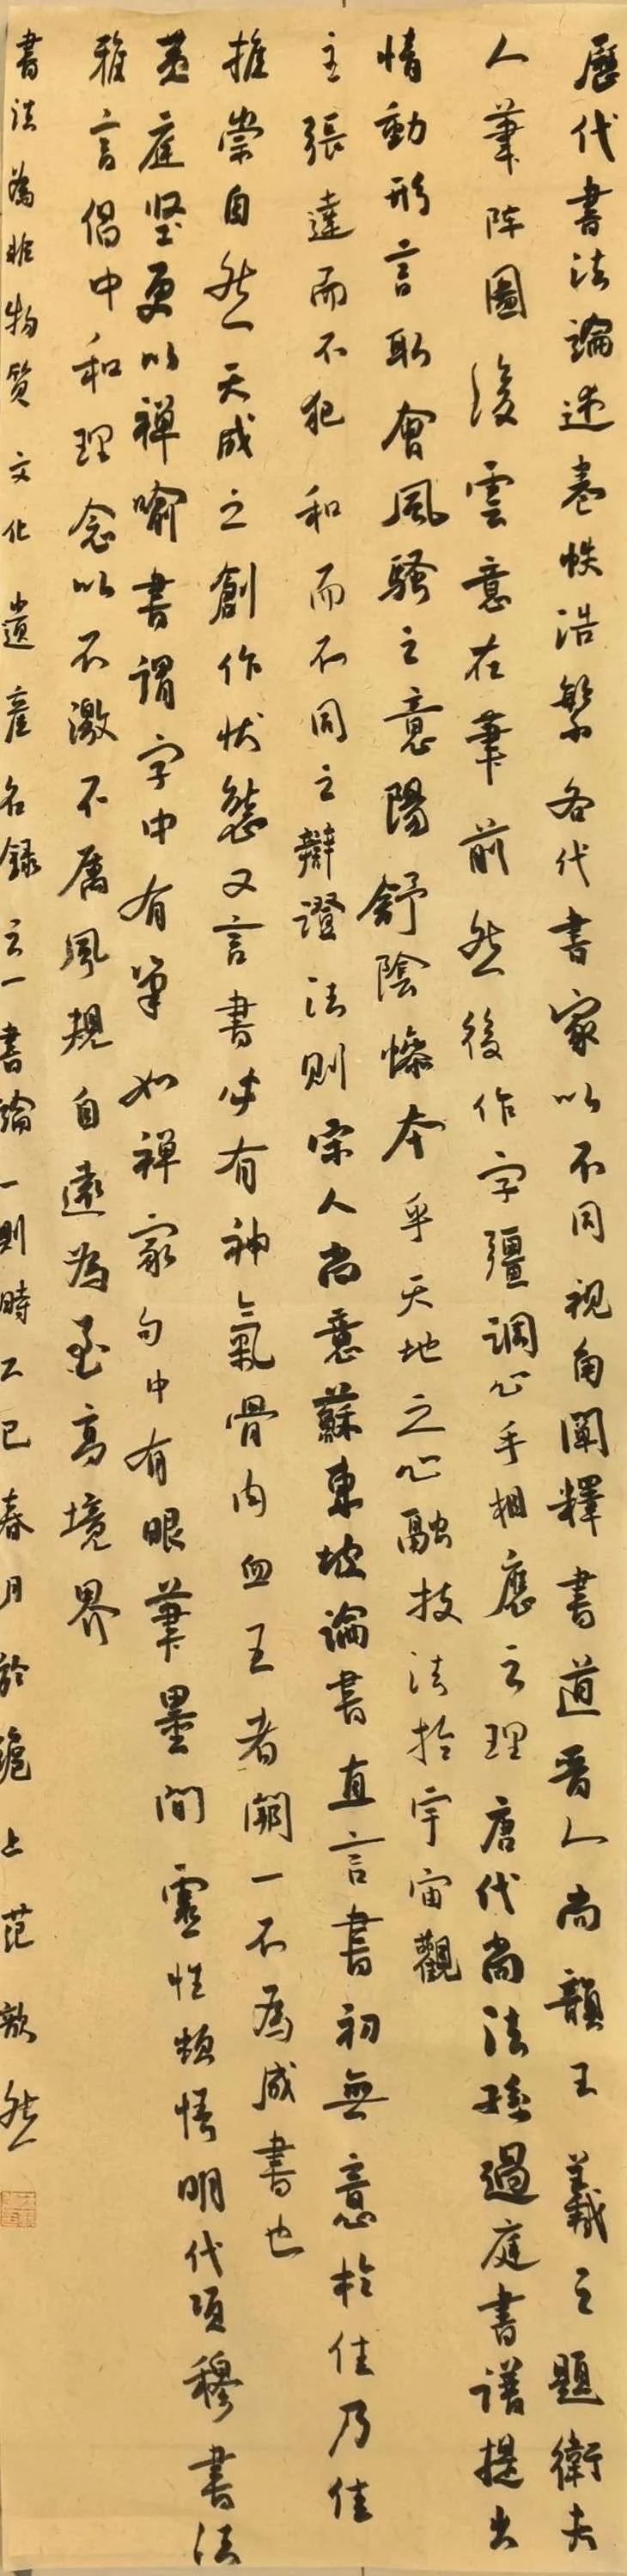 歷代書法論述卷帙浩繁各代書家以不同視角闡釋書道晋人尚韻王羲之題衛夫
人筆阵圖後雲意在筆前然後作字彊調心手相應之理唐代尚法孫過庭書譜提出
情動形言取會風騷之意陽舒陰慘本乎天地之心融技法於宇宙觀
主張達而不犯和而不同之辯證法則宋人尚意蘇東坡論書直言書初無意於佳乃佳
推崇自然天成之創作狀態又言書必有神氣骨肉血五者闕一不為成書也
黄庭坚更以禅喻書謂字中有筆如禅家句中有眼筆墨間靈性頓悟明代項穆書法
雅言倡中和理念以不激不厲風規自遠為至高境界
書法為非物質文化遺產名録之一書論一則時乙巳春月於滬上范歆然